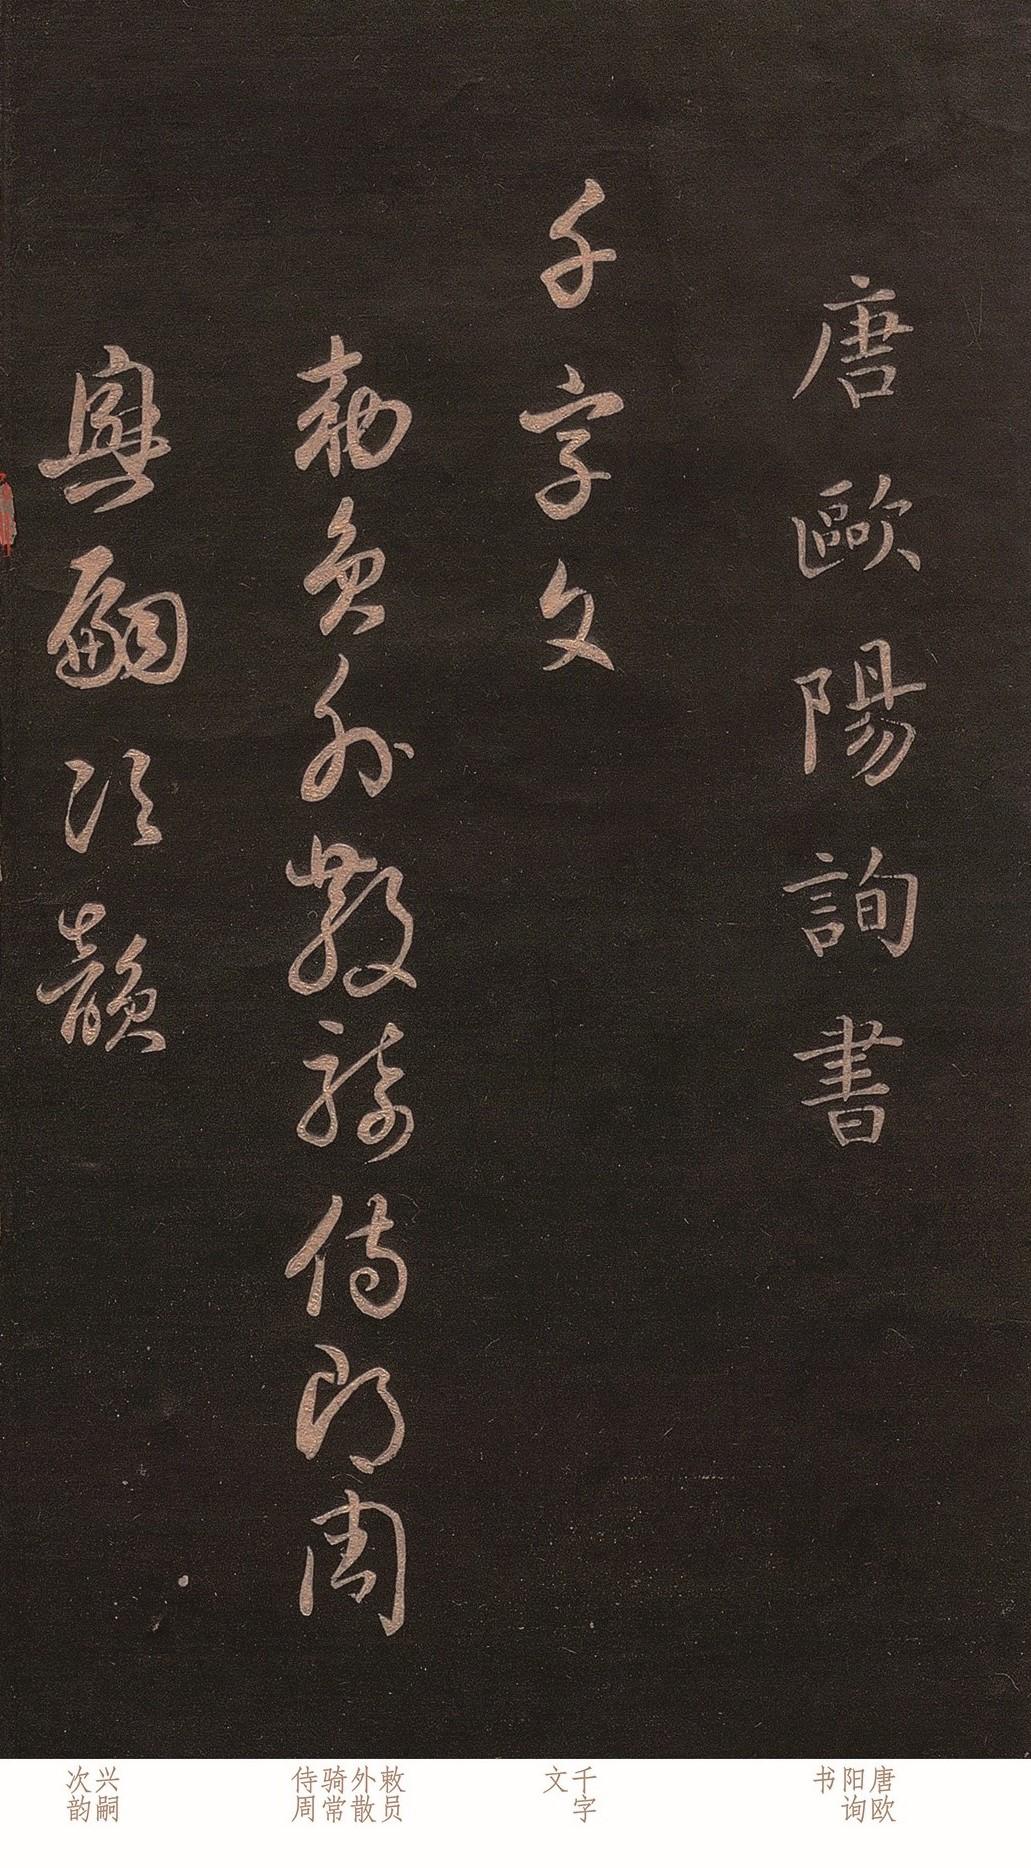 唐歐陽詢書
千字文
勅員外散騎侍郎周
興嗣次韻
唐欧
阳询
书
千字
文
敕员
外散
骑常
侍周
兴嗣
次韵